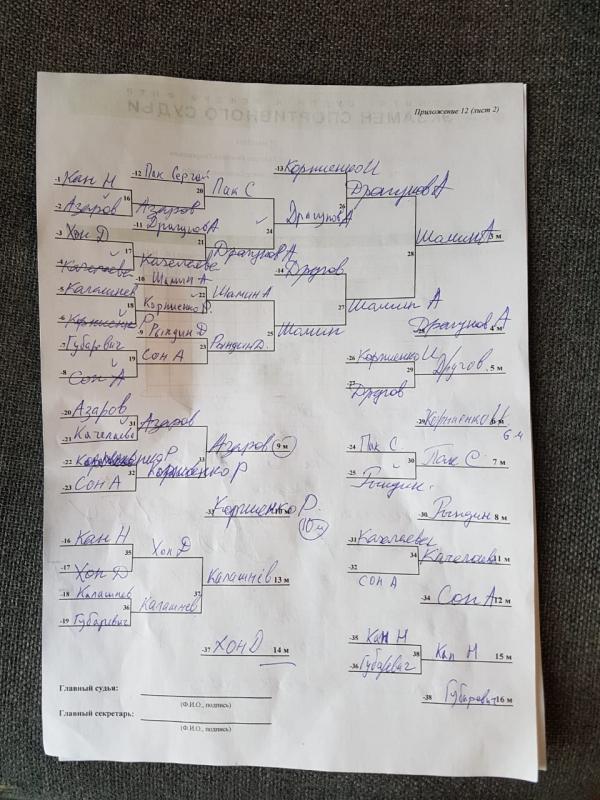 Приложение 12 (лист 2)
-1 Кан Н
-12 Пак Сергей
-13 Корниенко И
16
20
Пак С
26
Драгунов А
-2 Азаров
Азаров
24
-3 Хон Д
-11 Драгунов А
Драгунов А
17
21
Драгунов А
28
Шамин А 3 м
-4 Качелаева
Качелаеве
-14 Другов
-10 Шамин А
-5 Калашнев
22
Шамин А
27
Шамин А
18
Корниенко Р.
-6 Корниенко Р.
-9 Рындин Д
25
Шамин
Драгунов А 4 м
-7 Губаревич
23
Рындин Д.
-26 Корниенко И
19
Сон А
29
Другов 5 м
-8 Сон А
-27 Другов
-20 Азаров
-29 Корниенко И 6 м
31
Азаров
6 м
-21 Качелаева
33
Азаров 9 м
-24 Пак С.
-22
30
Пак С 7 м
32
Корниенко Р
-25 Рындин.
-23 Сон А
-33 Корниенко Р. 10 м
10 м
-30 Рындин 8 м
-16 Кан Н
-31 Качелаевы
35
Хон Д
34
Качелаева 11 м
-17 Хон Д
-32
Сон А
37
Калашнёв 13 м
-18 Калашнев
-34 Сон А 12 м
36
Калашнев
-19 Губаревич
-35 Кан Н
38
Кан Н 15 м
-37 Хон Д 14 м
-36 Губаревич
-38 Губаревич 16 м
Главный судья:
(Ф.И.О., подпись)
Главный секретарь:
(Ф.И.О., подпись)